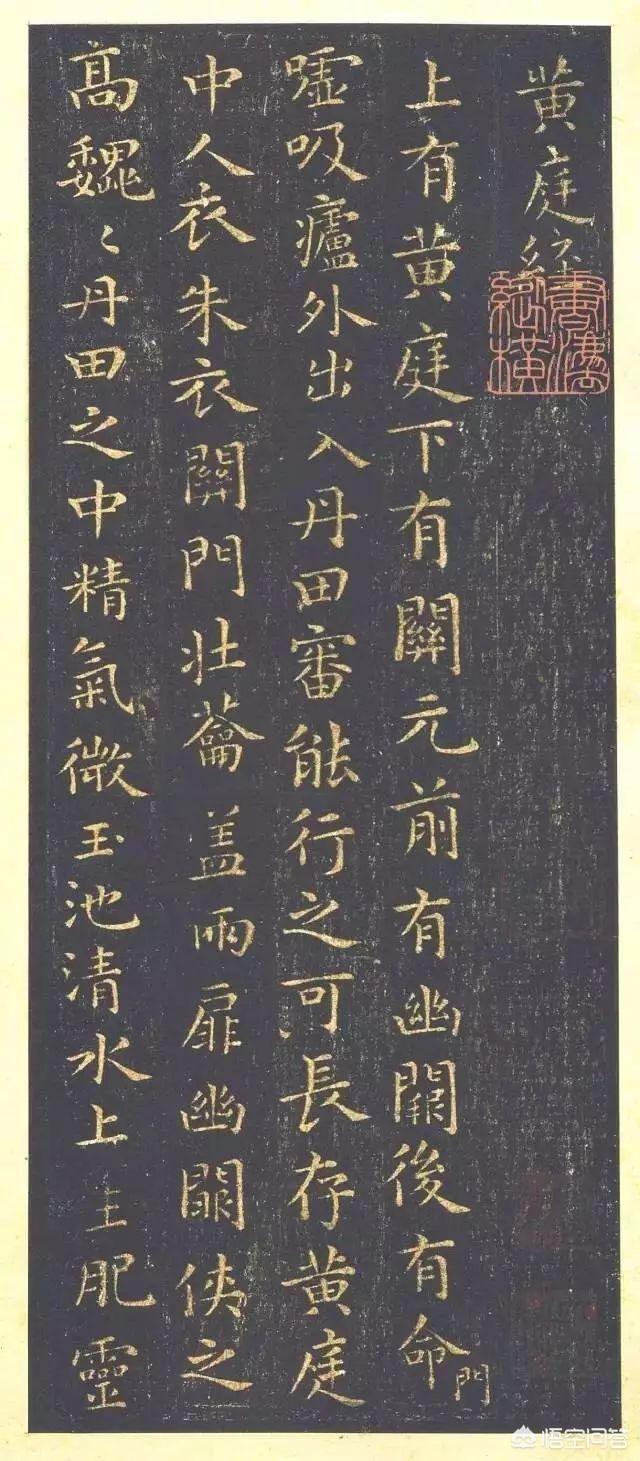 黄庭經
上有黄庭下有關元前有幽闕後有命門
嘘吸廬外出入丹田審能行之可長存黄庭
中人衣朱衣關門壯蘥盖兩扉幽闕侠之
高巍〻丹田之中精氣微玉池清水上生肥靈
悟空问答